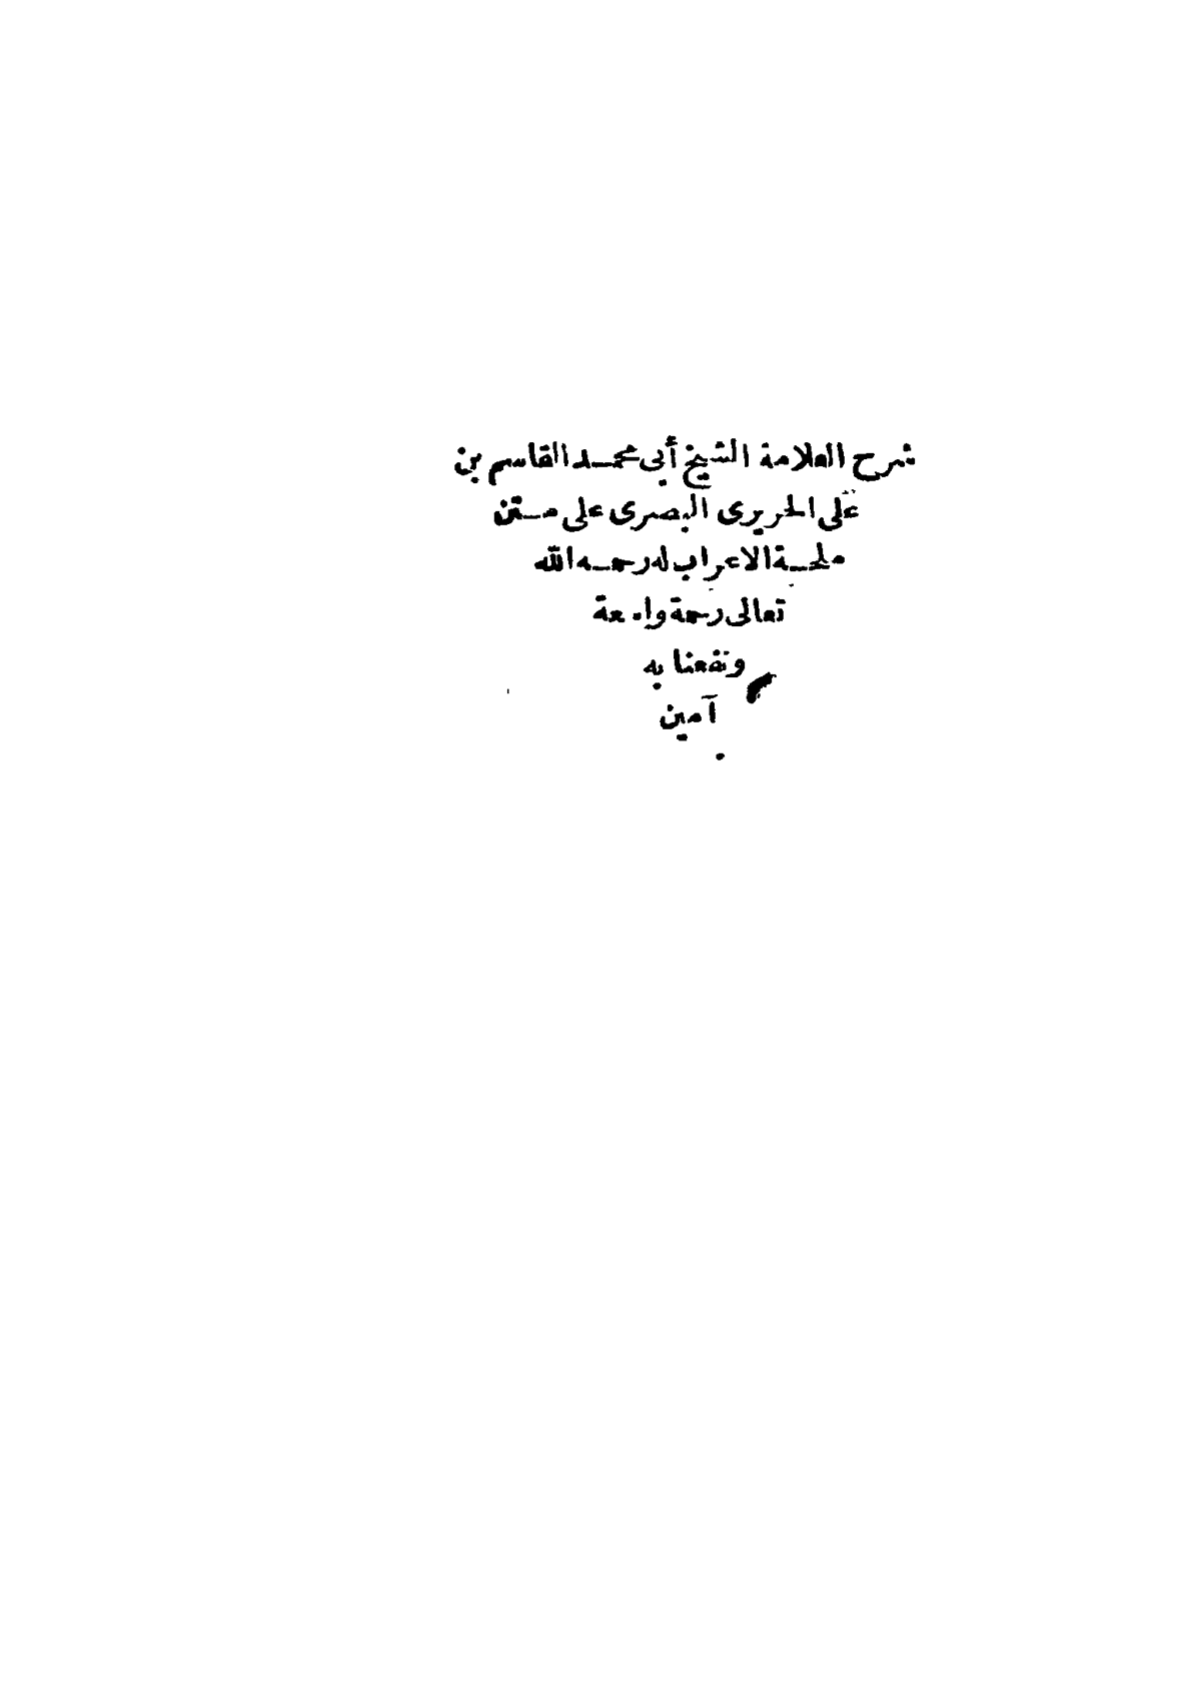 شرح العلامة الشيخ أبى محمد القاسم بن
على الحريرى البصرى على متن
ملحة الاعراب له رحمه الله
تعالى رحمة واسعة
ونفعنا به
آمين